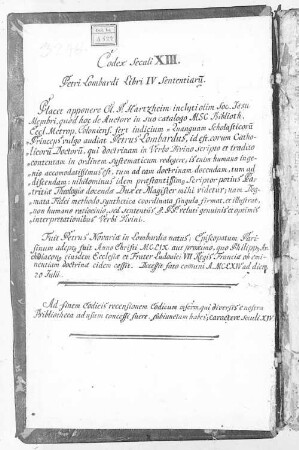 Codex Seculi XIII.
Petri Lombardi Libri IV Sententiarũ.
Placet apponere A. P. Hartzheim inclyti olim Soc. Jesu
Membri, quod hoc de Auctore in suo catalogo MSC. Biblioth.
Eccl. Metrop. Coloniens. fert iudicium: Quanquam Scholasticorũ
Princeps vulgo audiat Petrus Lombardus, id est, eorum Catho-
licorũ Doctorũ, qui doctrinam in Verbo Divino scripto et tradito
contentam in ordinem systematicum redegere, is enim humano inge-
nio accomodatissimus est, tum ad eam doctrinam docendam, tum ad
discendam: nihilominus idem præstantissimg Scriptor potius Pa-
tristicæ Theologiæ docendæ Dux et Magister mihi videtur; nam Dog-
mata Fidei methodo synthetica coordinata singula firmat, et illustrat,
non humano ratiocinio, sed sententiis S. PP. veluti genuinis et optimis
interpretationibus Verbi Divini.
Fuit Petrus Novariæ in Lombardia natus; Episcopatum Pari-
sinum adeptus fuit Anno Christi MCLIX. aut proximo, quo Philippus Ar-
chidiaconus ejusdem Ecclesiæ et Frater Ludovici VII. Regis Franciæ ob emi-
nentiam doctrinæ eidem cessit. Decessit fato eomani MCLXIV ad diem
20 Julii.
Ad finem Codicis recensionem Codicum aſſerv. qui diversis e nostra
Bibliotheca ad usum concessi fuere subiunctum habes, Caractere Seculi XIV.